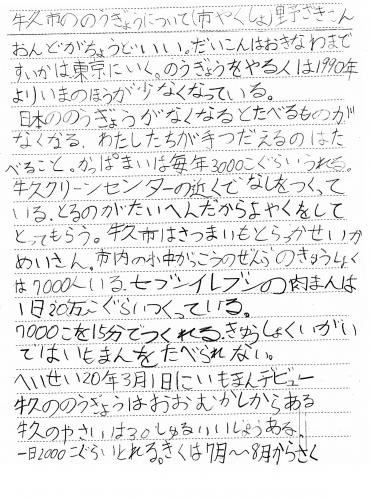 牛久市ののうぎょうについて(市やくしょ)里予ざきこん
おんどがちょうどいい。だいこんはおきなわまで
すいかは東京にいく。のうぎょうをやる人は1990年
よりいまのほうが少なくなっている。
日本ののうぎょうがなくなるとたべるものがど
なくなる。わたしたちが手つだえるのはた
べること。かっぱまいは毎年3000こぐらいうれる。
牛久クリーンセンターの近くでなしをつくって
いる。とるのがたいへんだからよやくをして
とってもらう。牛久市はさつまいもとらっかせいか
めいさん。市内の小中からこうのぜんぶのきゅうしょく
は7000人いる。セブンイレブンの肉まんは
1日20万こぐらいつくっている。
7000こを15分でつくれる。きゅうしょくいがい
ではいもまんをたべられない。
へいせい20年3月1日にいもまんデビュー
牛久ののうぎょうはおおむかしからある
牛久のやさいは30しゅるいいじょうある。
一日2000こぐらいとれる。きくは7月〜8月からさく